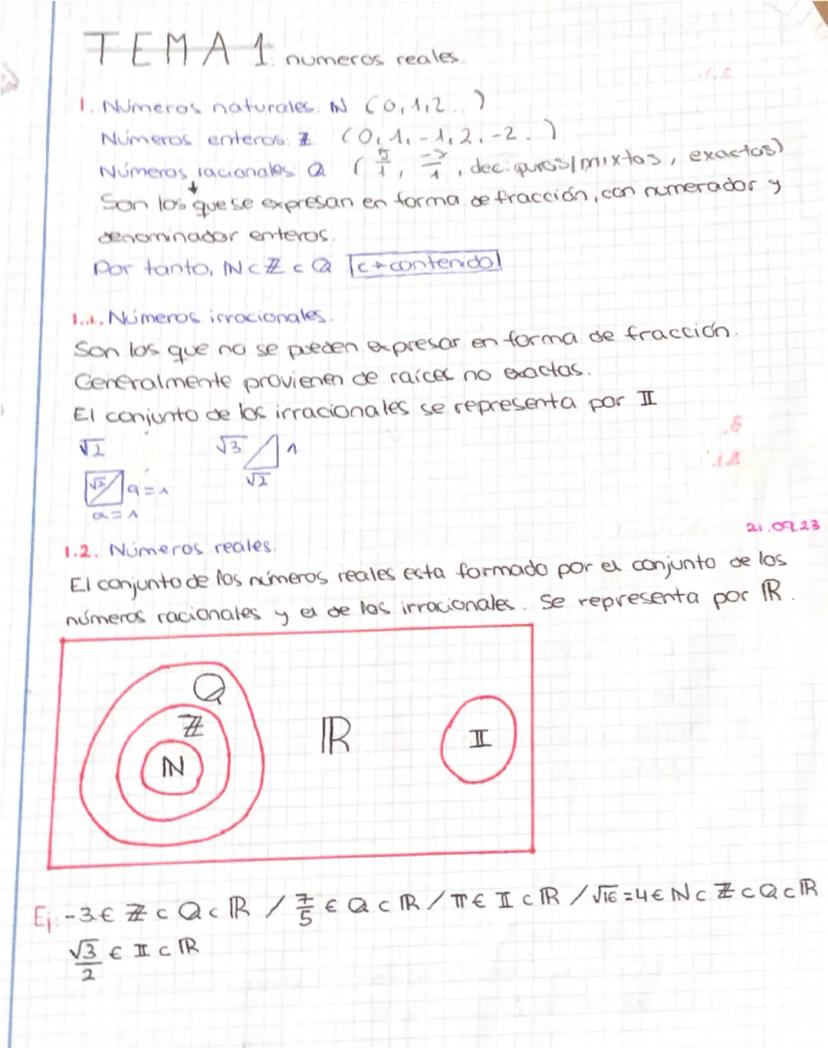 TEMA 1: numeros reales.
1. Números naturales. ℕ (0,1,2...)
Números enteros: ℤ (0,1,-1,2,-2...)
Números racionales ℚ (5/1, -7/1, dec: puros/mixtos, exactos)
↓
Son los que se expresan en forma de fracción, con numerador y
denominador enteros.
Por tanto, ℕ ⊂ ℤ ⊂ ℚ [⊂→contenido]
1.1. Números irracionales.
Son los que no se pueden expresar en forma de fracción.
Generalmente provienen de raíces no exactas.
El conjunto de los irracionales se representa por 𝕀
√2 √3 1
√2 a=1 √2
a=1
21.09.23
1.2. Números reales.
El conjunto de los números reales esta formado por el conjunto de los
números racionales y el de los irracionales. Se representa por ℝ.
ℚ
ℤ
ℕ ℝ 𝕀
Ej: -3 ∈ ℤ ⊂ ℚ ⊂ ℝ / 7/5 ∈ ℚ ⊂ ℝ / π ∈ 𝕀 ⊂ ℝ / √16=4 ∈ ℕ ⊂ ℤ ⊂ ℚ ⊂ ℝ
√3/2 ∈ 𝕀 ⊂ ℝ